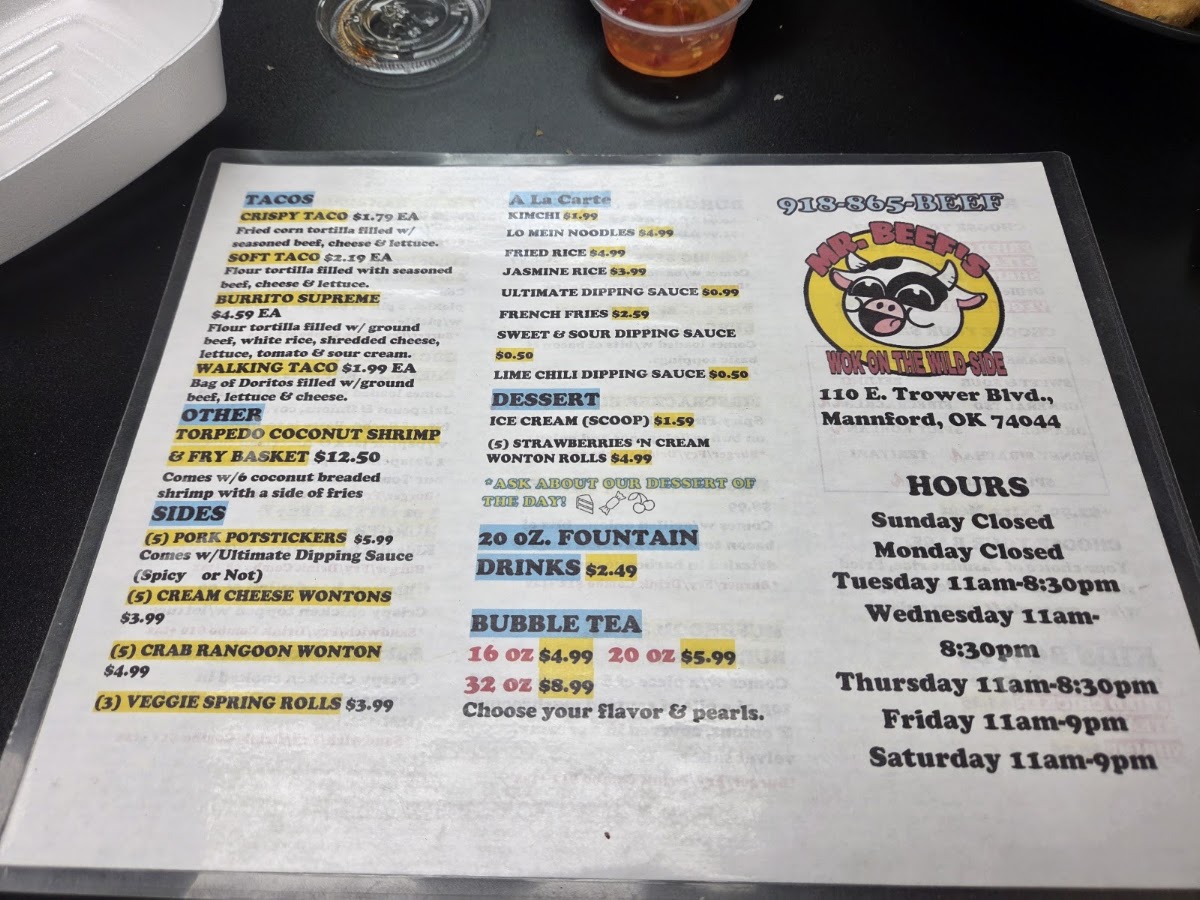 TACOS
CRISPY TACO $1.79 EA
Fried corn tortilla filled w/
seasoned beef, cheese & lettuce.
SOFT TACO $2.19 EA
Flour tortilla filled with seasoned
beef, cheese & lettuce.
BURRITO SUPREME
$4.59 EA
Flour tortilla filled w/ ground
beef, white rice, shredded cheese,
lettuce, tomato & sour cream.
WALKING TACO $1.99 EA
Bag of Doritos filled w/ground
beef, lettuce & cheese.
OTHER
TORPEDO COCONUT SHRIMP
& FRY BASKET $12.50
Comes w/6 coconut breaded
shrimp with a side of fries
SIDES
(5) PORK POTSTICKERS $5.99
Comes w/Ultimate Dipping Sauce
(Spicy or Not)
(5) CREAM CHEESE WONTONS
$3.99
(5) CRAB RANGOON WONTON
$4.99
(3) VEGGIE SPRING ROLLS $3.99
A La Carte
KIMCHI $1.99
LO MEIN NOODLES $4.99
FRIED RICE $4.99
JASMINE RICE $3.99
ULTIMATE DIPPING SAUCE $0.99
FRENCH FRIES $2.59
SWEET & SOUR DIPPING SAUCE
$0.50
LIME CHILI DIPPING SAUCE $0.50
DESSERT
ICE CREAM (SCOOP) $1.59
(5) STRAWBERRIES 'N CREAM
WONTON ROLLS $4.99
*ASK ABOUT OUR DESSERT OF
THE DAY!
20 OZ. FOUNTAIN
DRINKS $2.49
BUBBLE TEA
16 OZ $4.99 20 OZ $5.99
32 OZ $8.99
Choose your flavor & pearls.
918-865-BEEF
MR. BEEFI'S
WOK ON THE WILD SIDE
110 E. Trower Blvd.,
Mannford, OK 74044
HOURS
Sunday Closed
Monday Closed
Tuesday 11am-8:30pm
Wednesday 11am-
8:30pm
Thursday 11am-8:30pm
Friday 11am-9pm
Saturday 11am-9pm